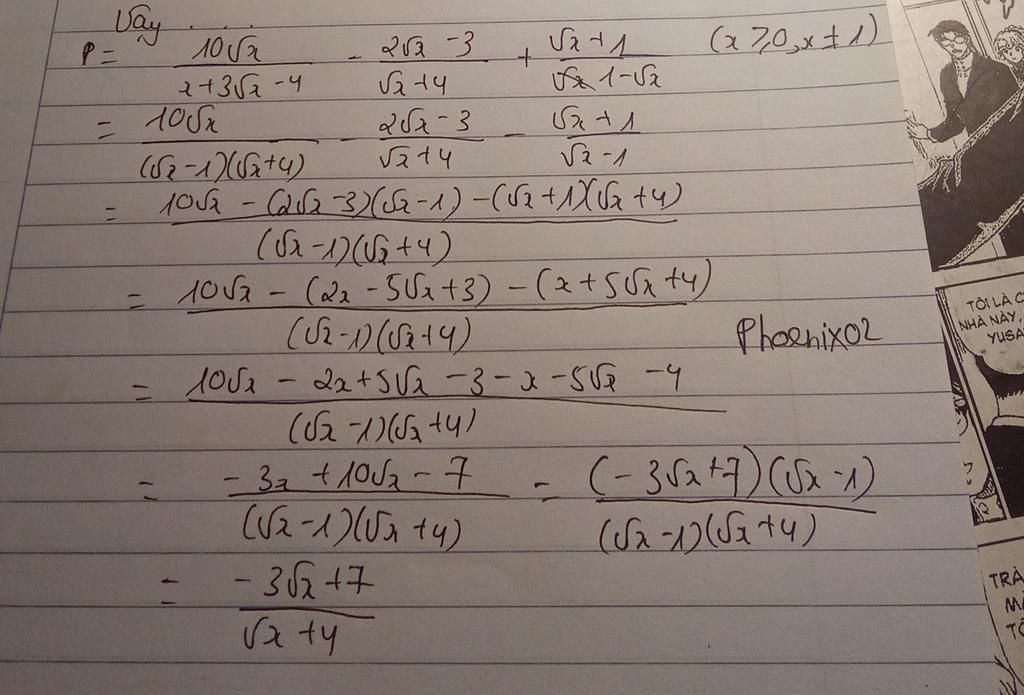 Vậy .....
P = \frac{10\sqrt{x}}{x+3\sqrt{x}-4} - \frac{2\sqrt{x}-3}{\sqrt{x}+4} + \frac{\sqrt{x}+1}{1-\sqrt{x}} (x ≥ 0, x ≠ 1)
= \frac{10\sqrt{x}}{(\sqrt{x}-1)(\sqrt{x}+4)} - \frac{2\sqrt{x}-3}{\sqrt{x}+4} - \frac{\sqrt{x}+1}{\sqrt{x}-1}
= \frac{10\sqrt{x}-(2\sqrt{x}-3)(\sqrt{x}-1)-(\sqrt{x}+1)(\sqrt{x}+4)}{(\sqrt{x}-1)(\sqrt{x}+4)}
= \frac{10\sqrt{x}-(2x-5\sqrt{x}+3)-(x+5\sqrt{x}+4)}{(\sqrt{x}-1)(\sqrt{x}+4)}
Phoenix02
= \frac{10\sqrt{x}-2x+5\sqrt{x}-3-x-5\sqrt{x}-4}{(\sqrt{x}-1)(\sqrt{x}+4)}
= \frac{-3x+10\sqrt{x}-7}{(\sqrt{x}-1)(\sqrt{x}+4)} = \frac{(-3\sqrt{x}+7)(\sqrt{x}-1)}{(\sqrt{x}-1)(\sqrt{x}+4)}
= \frac{-3\sqrt{x}+7}{\sqrt{x}+4}
TÔI LÀ
NHÀ NÀY,
YUSA